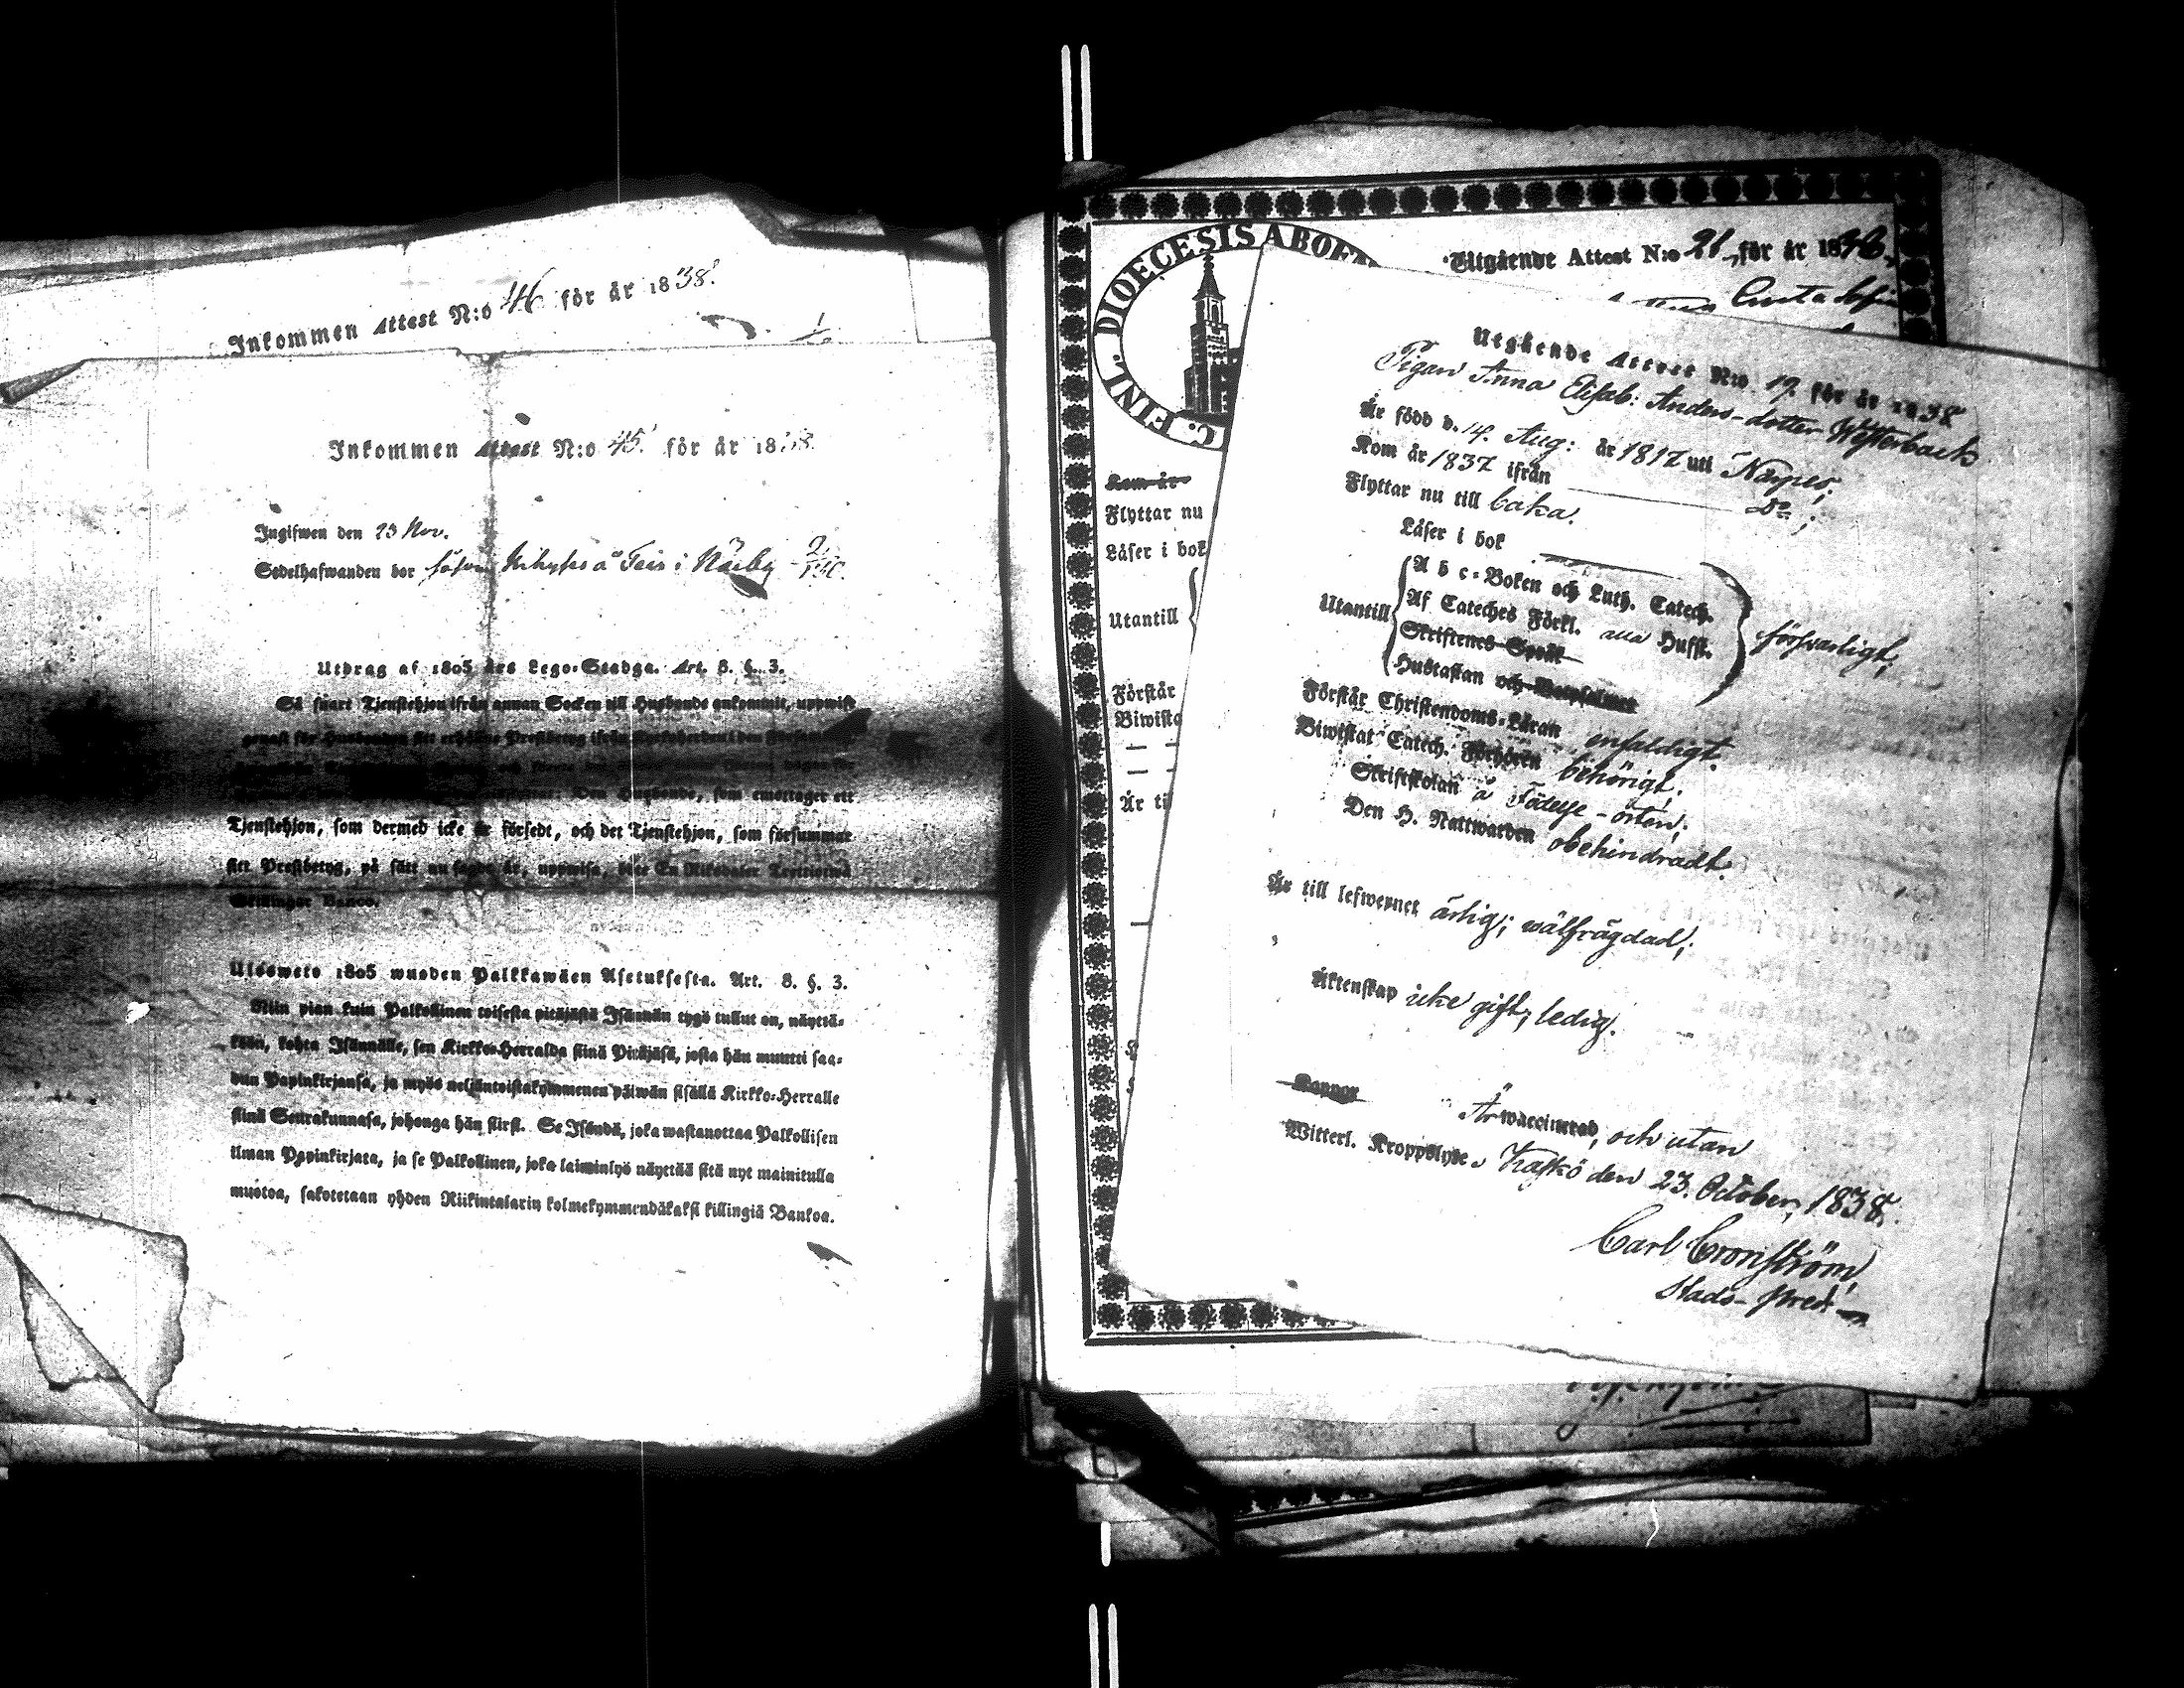 Inkommen Attest N:o 46 för år 1838.
Inkommen Attest N:o 45. för år 1838.
Ingifwen den 23 Nov.
Sedelhafwanden bor såsom å Teir i Närby
Utdrag af 1805 års Lego-Stadga. Art. 8. §. 3.
Så snart Tjenstehjon ifrån annan Socken till Husbonde ankommit, uppwise
genast för Husbonden sitt erhållne Prestbetyg ifrån Kyrkoherden i den
Den Husbonde, som emottager ett
Tjenstehjon, som dermed icke är försedt, och det Tjenstehjon, som försummar
sitt Prestbetyg, på sätt nu sagdt är, uppwisa, böte En Riksdaler Trettiotwå
Skillingar Banco.
Ulosweto 1805 wuoden Palkkawäen Asetuksesta. Art. 8. §. 3.
Niin pian kuin Palkollinen toisesta pitäjästä Isännän tygö tullut on, näyttä-
köön, kohta Isännälle, sen Kirkko-Herralda siinä Pitäjäsä, josta hän muutti saa-
dun Papinkirjansa, ja myös neljäntoistakymmenen päiwän sisällä Kirkko-Herralle
siinä Seurakunnasa, johonga hän siirsi. Se Isändä, joka wastanottaa Palkollisen
ilman Papinkirjata, ja se Palkollinen, joka laiminlyö näyttää sitä nyt mainitulla
muotoa, sakotetaan yhden Riikintalarin kolmekymmendäkaksi killingiä Bankoa.
C. FINL. DIOECESIS ABOEN
Utgående Attest N:o 21 för år 1838.
Kom år
Flyttar nu
Läser i bok
Utantill
Förstår
Biwista
Är ti
Utgående Attest N:o 19. för år 1838
Pigan Anna Elisab: Anders-dotter Westerback
Är född d. 14. Aug: år 1817 uti Närpes;
Kom år 1837 ifrån D:o;
Flyttar nu till baka.
Läser i bok
Utantill
A b c-Boken och Luth. Catech.
Af Cateches Förkl. Hussl.
Skriftenes Språk
Hustaflan och Botpsalmer
försvarligt;
Förstår Christendoms-Läran enfaldigt.
Biwistat Catech. Förhören behörigt;
Skriftskolan å Födelse-orten;
Den H. Nattwarden obehindradt.
Är till lefwernet ärlig; wälfrägdad;
Äktenskap icke gift, ledig.
Koppor
Är waccinerad, och utan
Witterl. Kroppslyte. Kaskö den 23. October, 1838.
Carl Cronström,
Stads-pred.